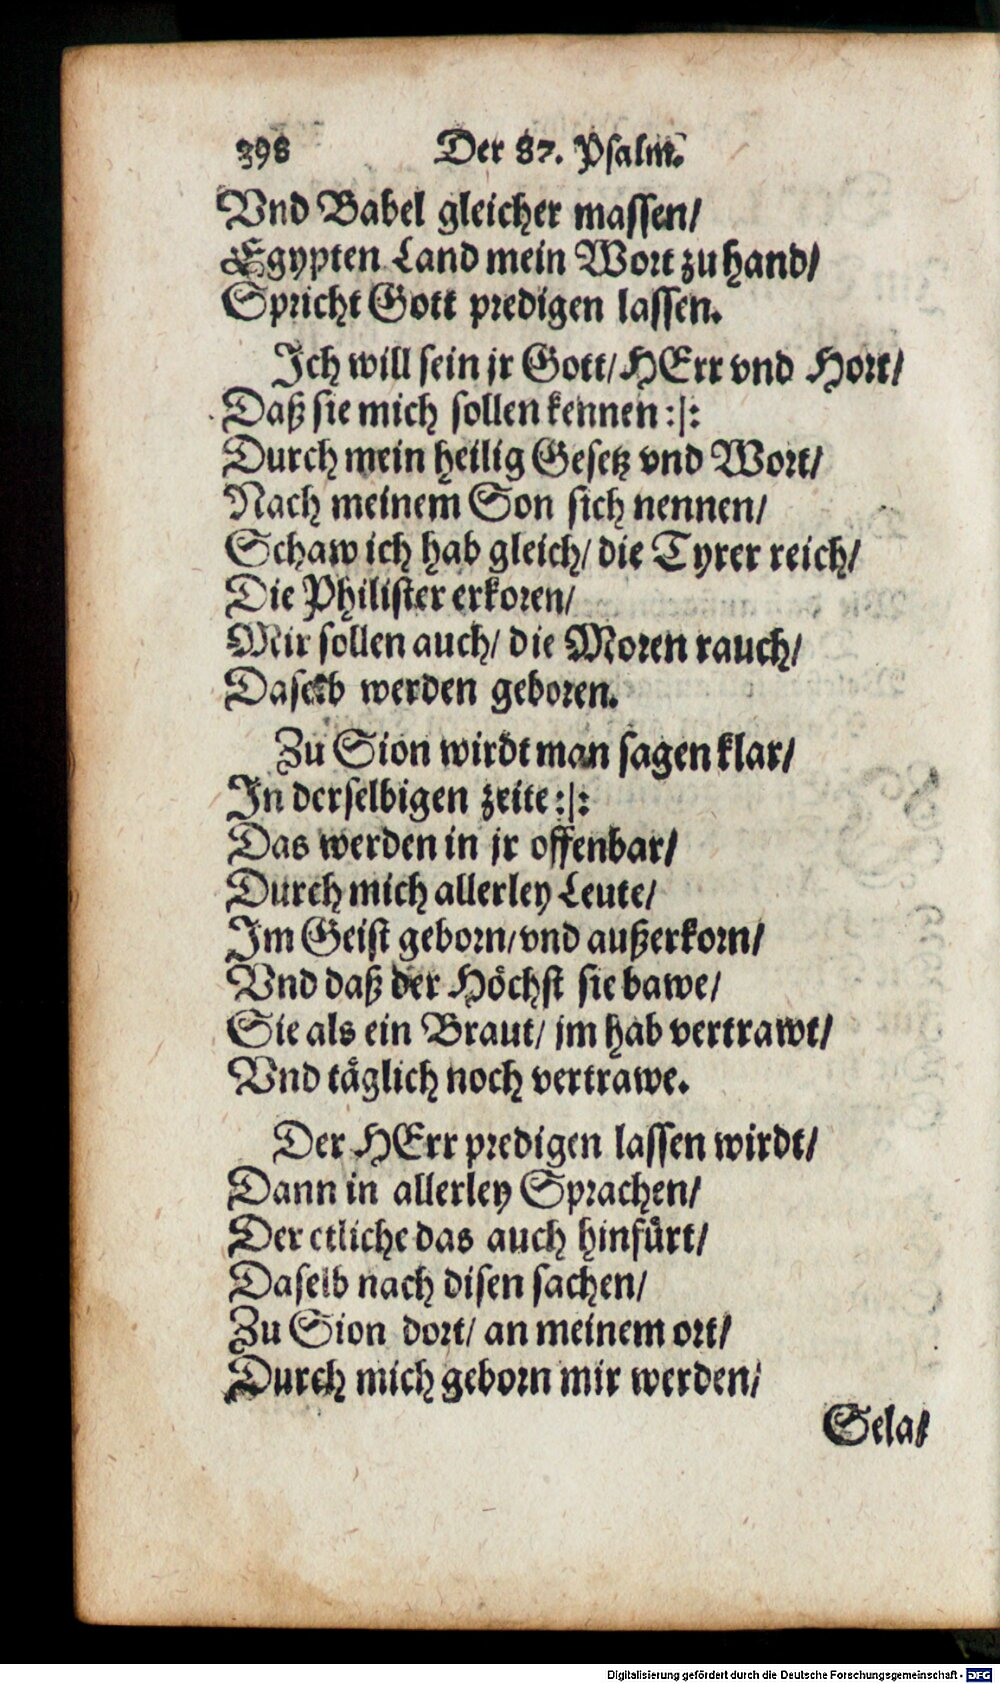 398 Der 87. Psalm.
Vnd Babel gleicher massen/
Egypten Land mein Wort zu hand/
Spricht Gott predigen lassen.
Ich will sein jr Gott/ HErr vnd Hort/
Daß sie mich sollen kennen :|:
Durch mein heilig Gesetz vnd Wort/
Nach meinem Son sich nennen/
Schaw ich hab gleich/ die Tyrer reich/
Die Philister erkoren/
Mir sollen auch/ die Moren rauch/
Daselb werden geboren.
Zu Sion wirdt man sagen klar/
In derselbigen zeite :|:
Das werden in jr offenbar/
Durch mich allerley Leute/
Im Geist geborn/ vnd außerkorn/
Vnd daß der Höchst sie bawe/
Sie als ein Braut/ jm hab vertrawt/
Vnd täglich noch vertrawe.
Der HErr predigen lassen wirdt/
Dann in allerley Sprachen/
Der etliche das auch hinfürt/
Daselb nach disen sachen/
Zu Sion dort/ an meinem ort/
Durch mich geborn mir werden/
Sela/
Digitalisierung gefördert durch die Deutsche Forschungsgemeinschaft - DFG